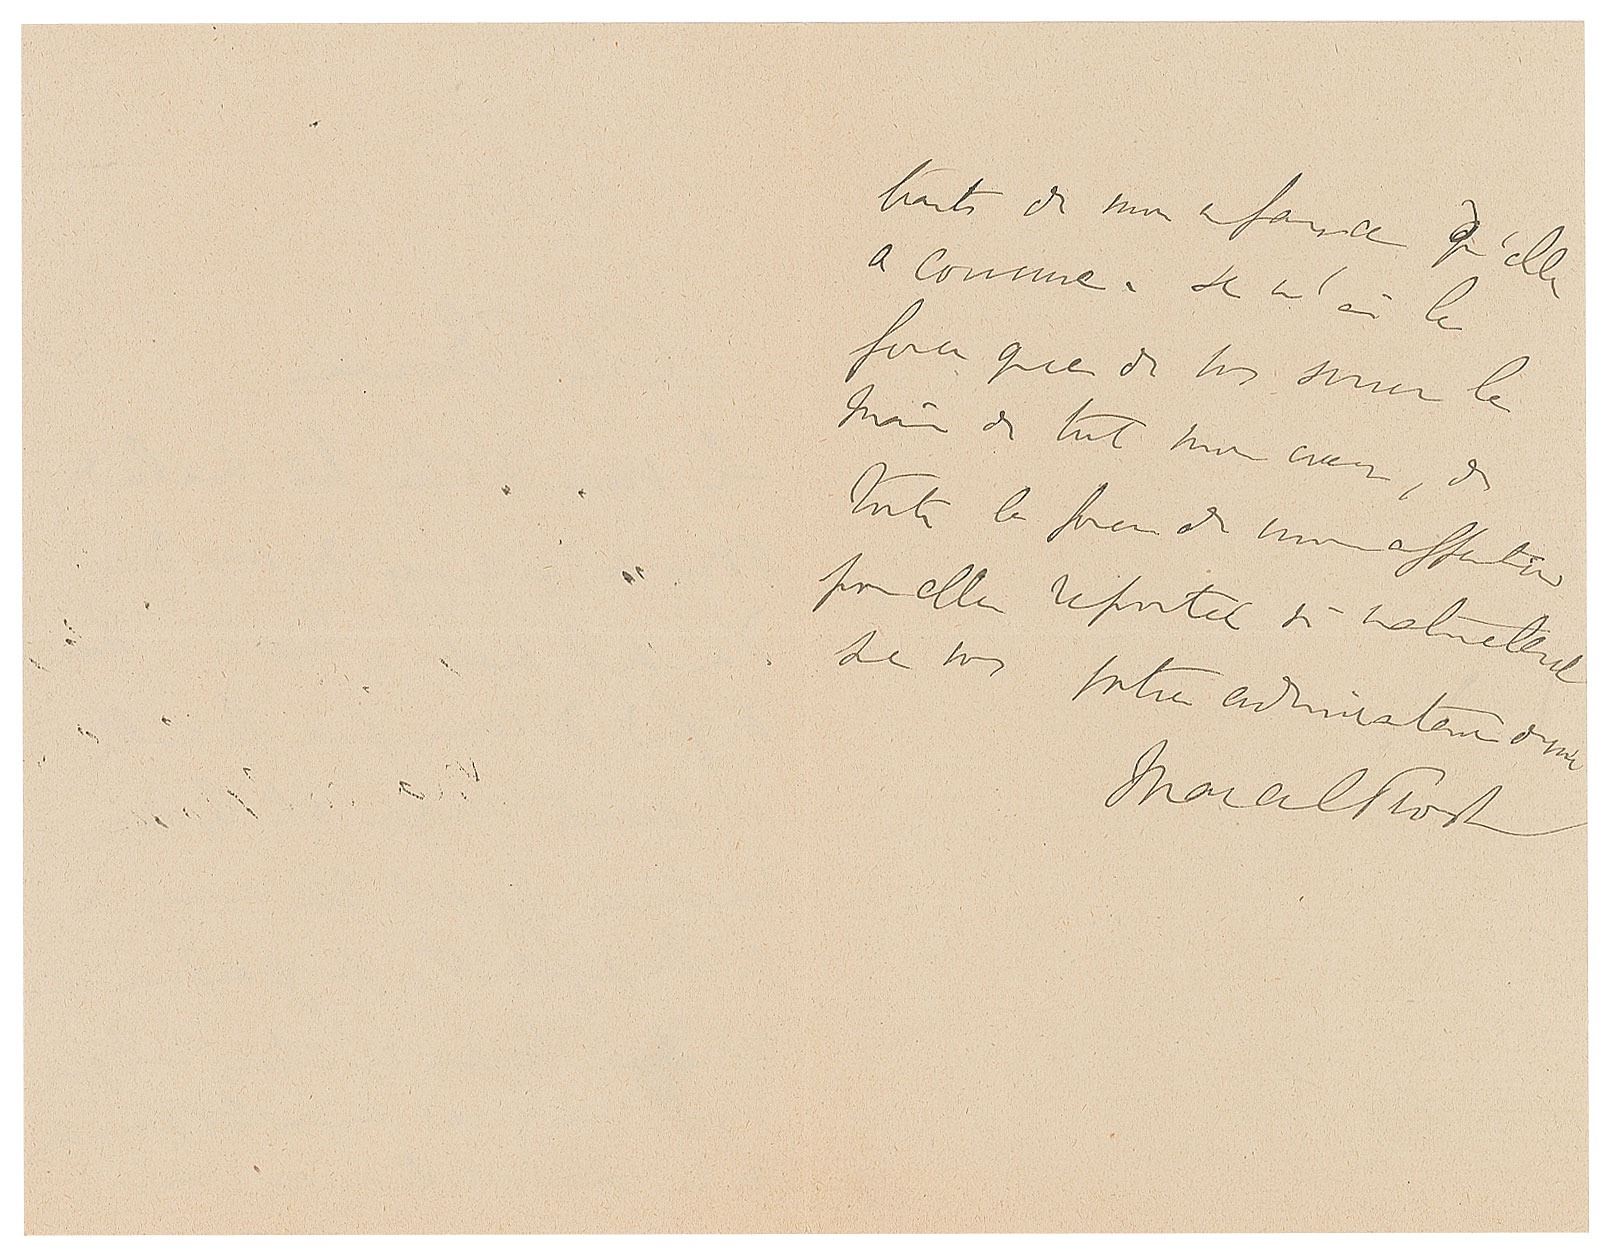 traits de mon enfance qu'elle
a connue. Je n'ai la
force que de vous serrer la
main de tout mon cœur, de
toute la force de mon affection
pour elle reportée si naturellement
sur vous votre admirateur et ami
Marcel Proust